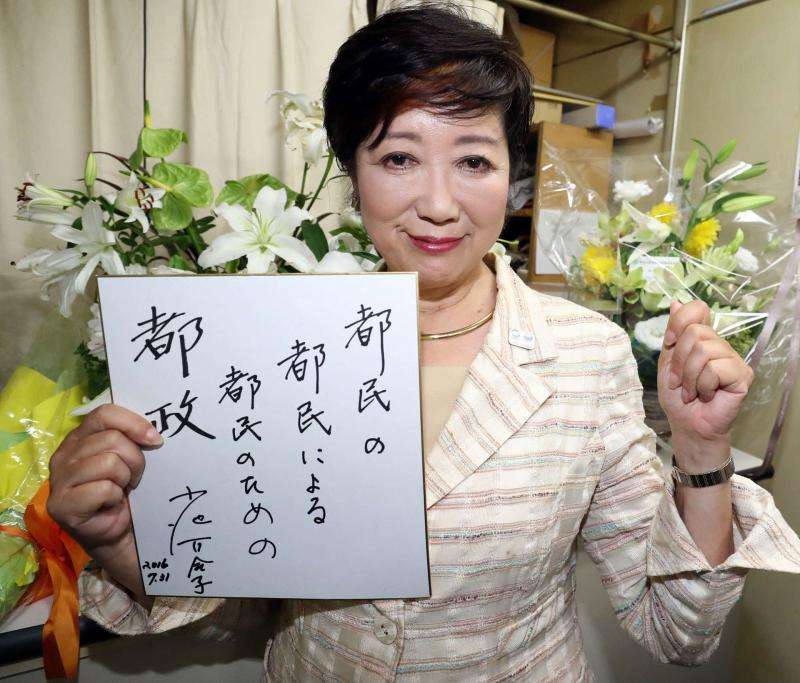 都民の
都民による
都民のための
都政
小池百合子
2016
7.31